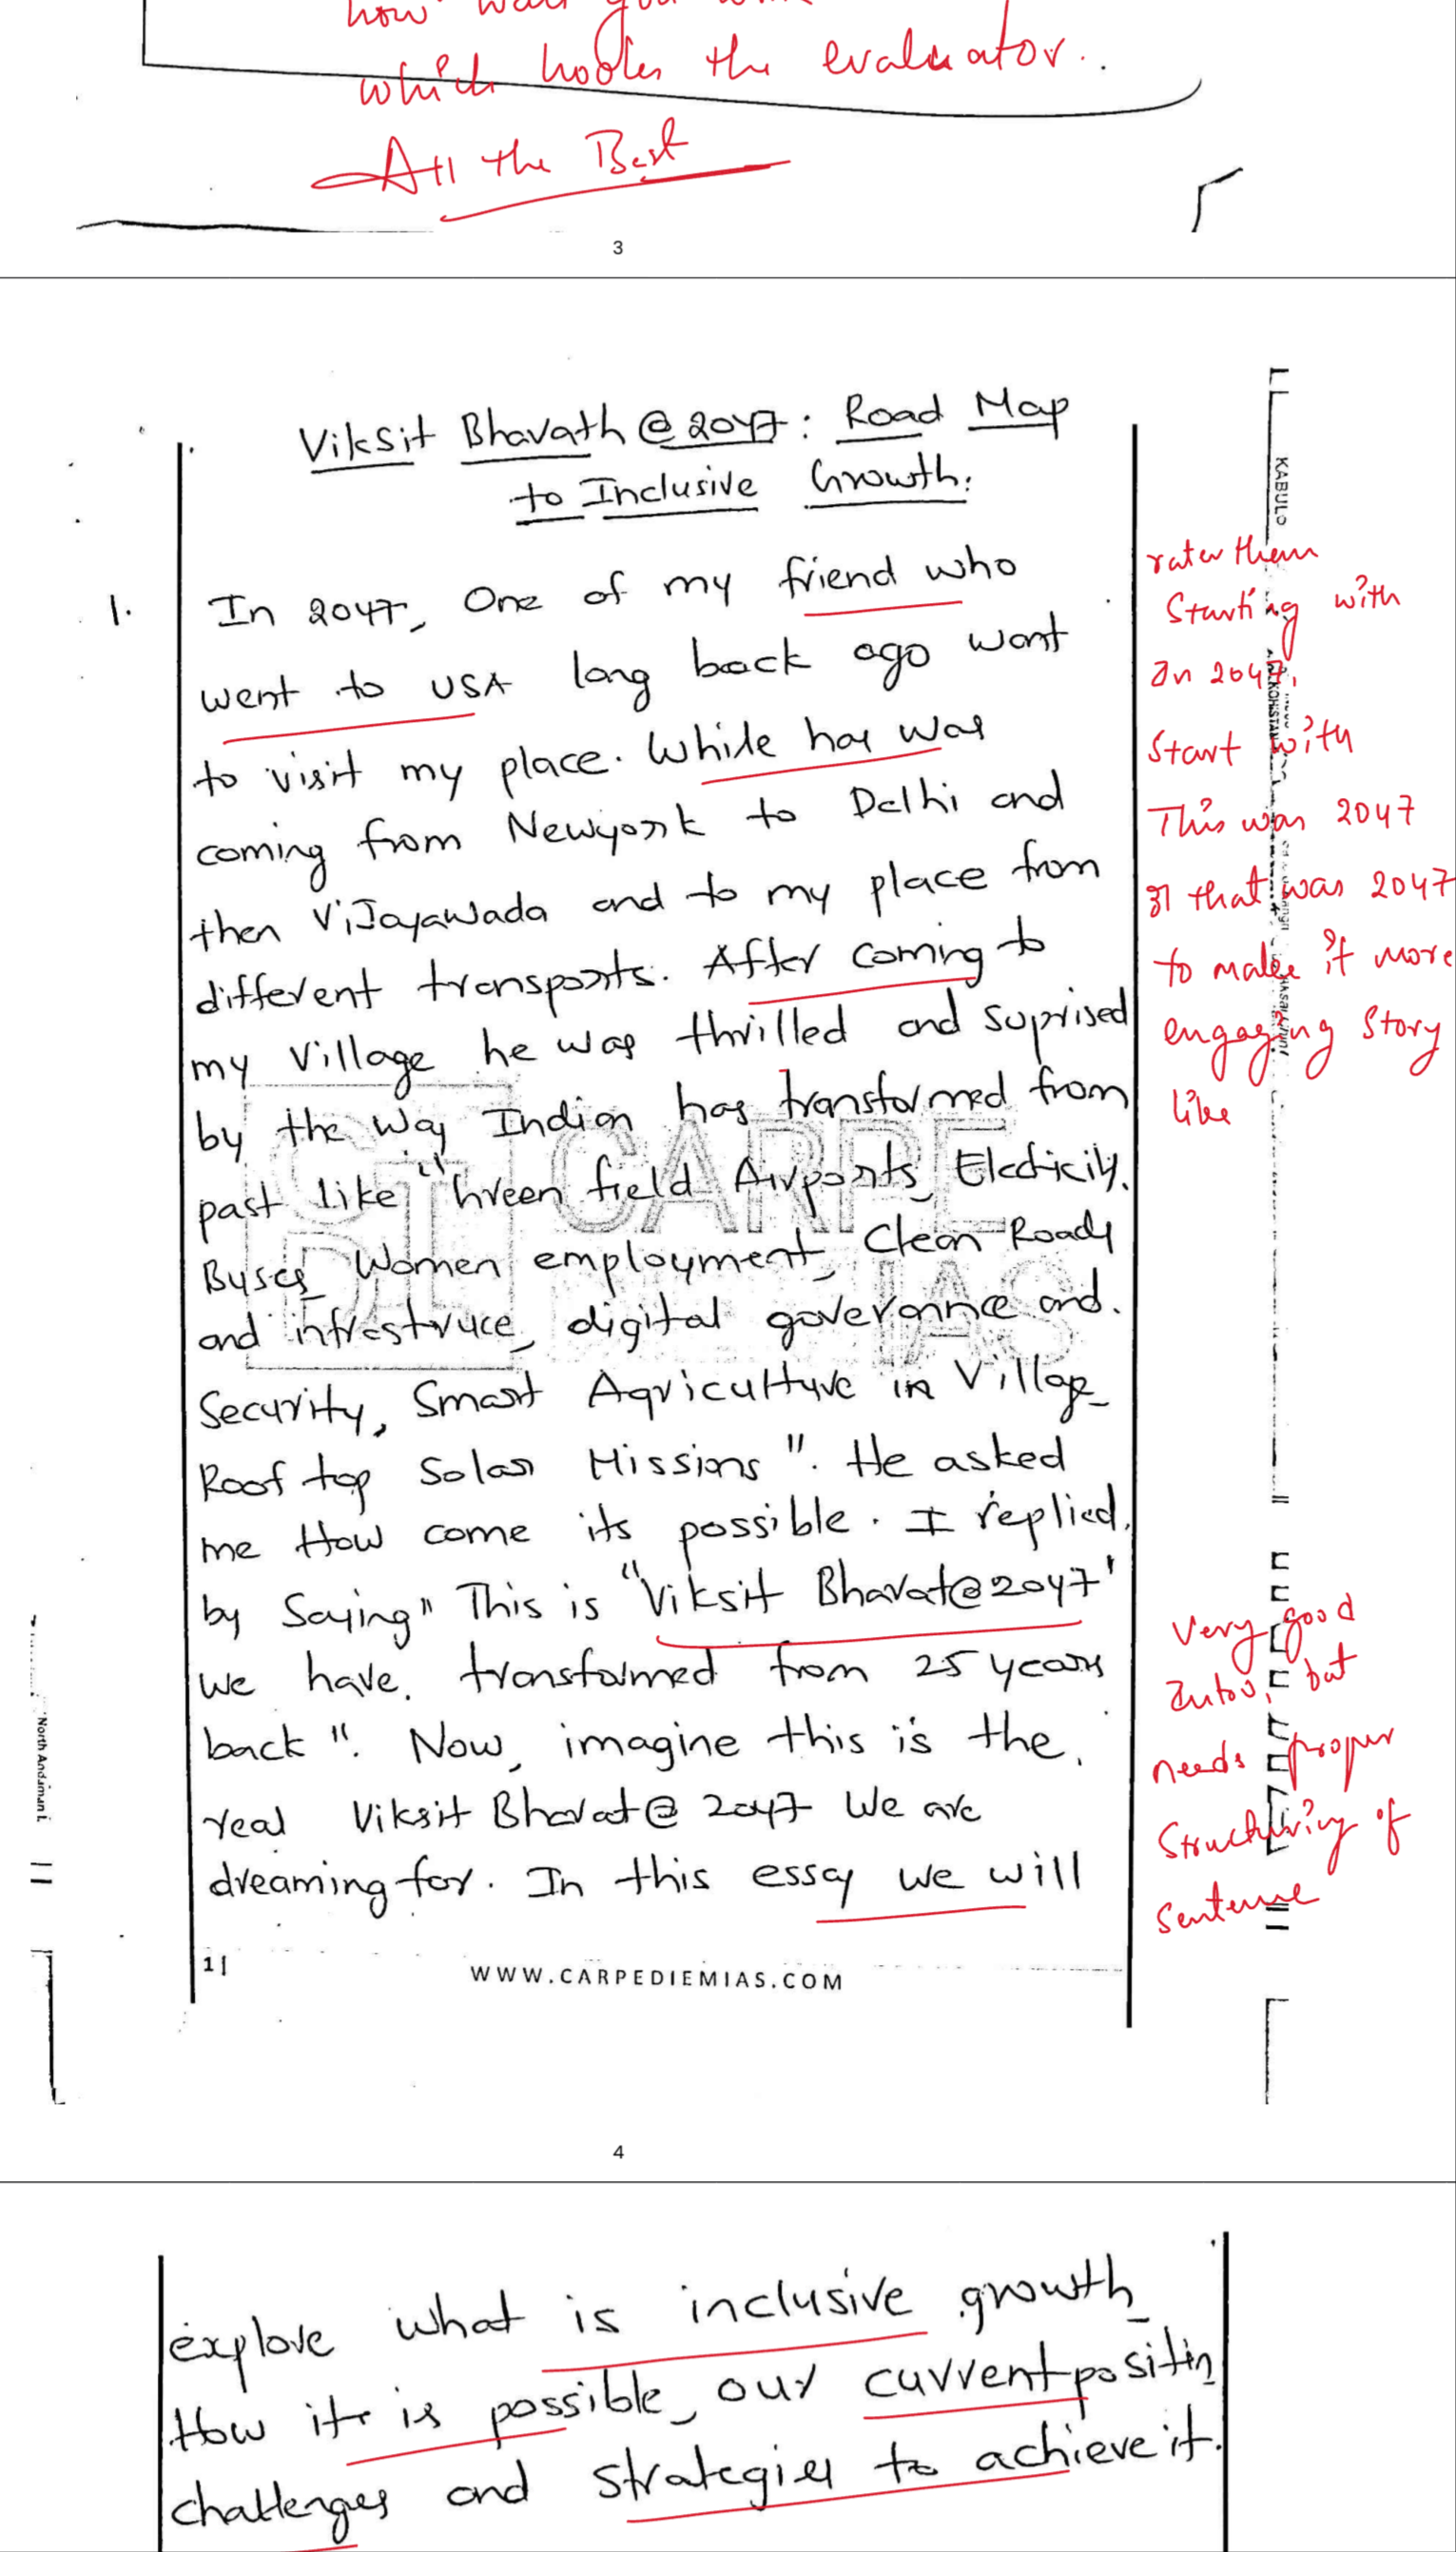 which hooks the evaluator..
All the Best
3
Viksit Bhavath @ 2047: Road Map
to Inclusive Growth.
KABULO
1. In 2047, One of my friend who
went to USA long back ago want
to visit my place. While has was
coming from Newyork to Delhi and
then ViJayawada and to my place from
different transports. After coming to
my Village he was thrilled and suprised
by the way Indian has transformed from
past like "Green field Airports, Electricity.
Buses, Women employment, Clean Roads
and infrastruce, digital goverannce and.
Security, Smart Agriculture in Village
Roof top Solar Missions". He asked
me How come its possible. I replied.
by Saying" This is "Viksit Bharat@2047'
we have. transformed from 25 years
back". Now, imagine this is the.
real Viksit Bharat@ 2047 We are
dreaming for. In this essay we will
rater then
Starting with
In 2047,
Start with
This was 2047
that was 2047
to make it more
engaging Story
like
Very good
but
needs proper
Structuring of
Sentence
CARPE
DI
IAS
North Andaman I.
1|
WWW.CARPEDIEMIAS.COM
4
explore what is inclusive growth
How it is possible, our current positin
challenges and strategies to achieve it.